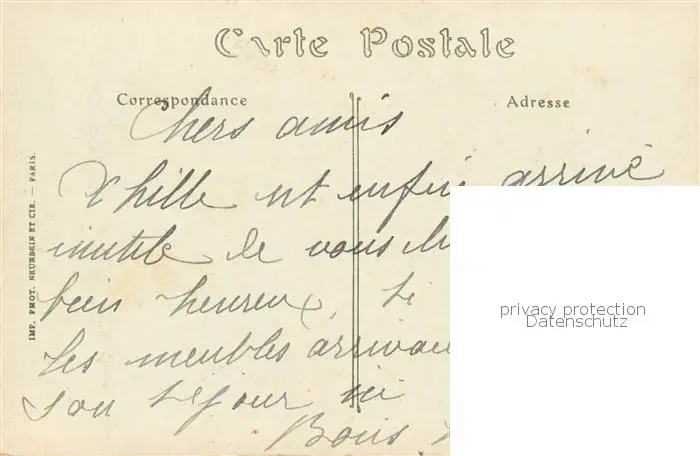 Carte Postale
Correspondance
Adresse
IMP. PHOT. NEURDEIN ET CIE. — PARIS.
Chers amis
est enfin arrivé
inutile de vous
bien heureux, si
les meubles
son séjour ici
Bons
privacy protection
Datenschutz